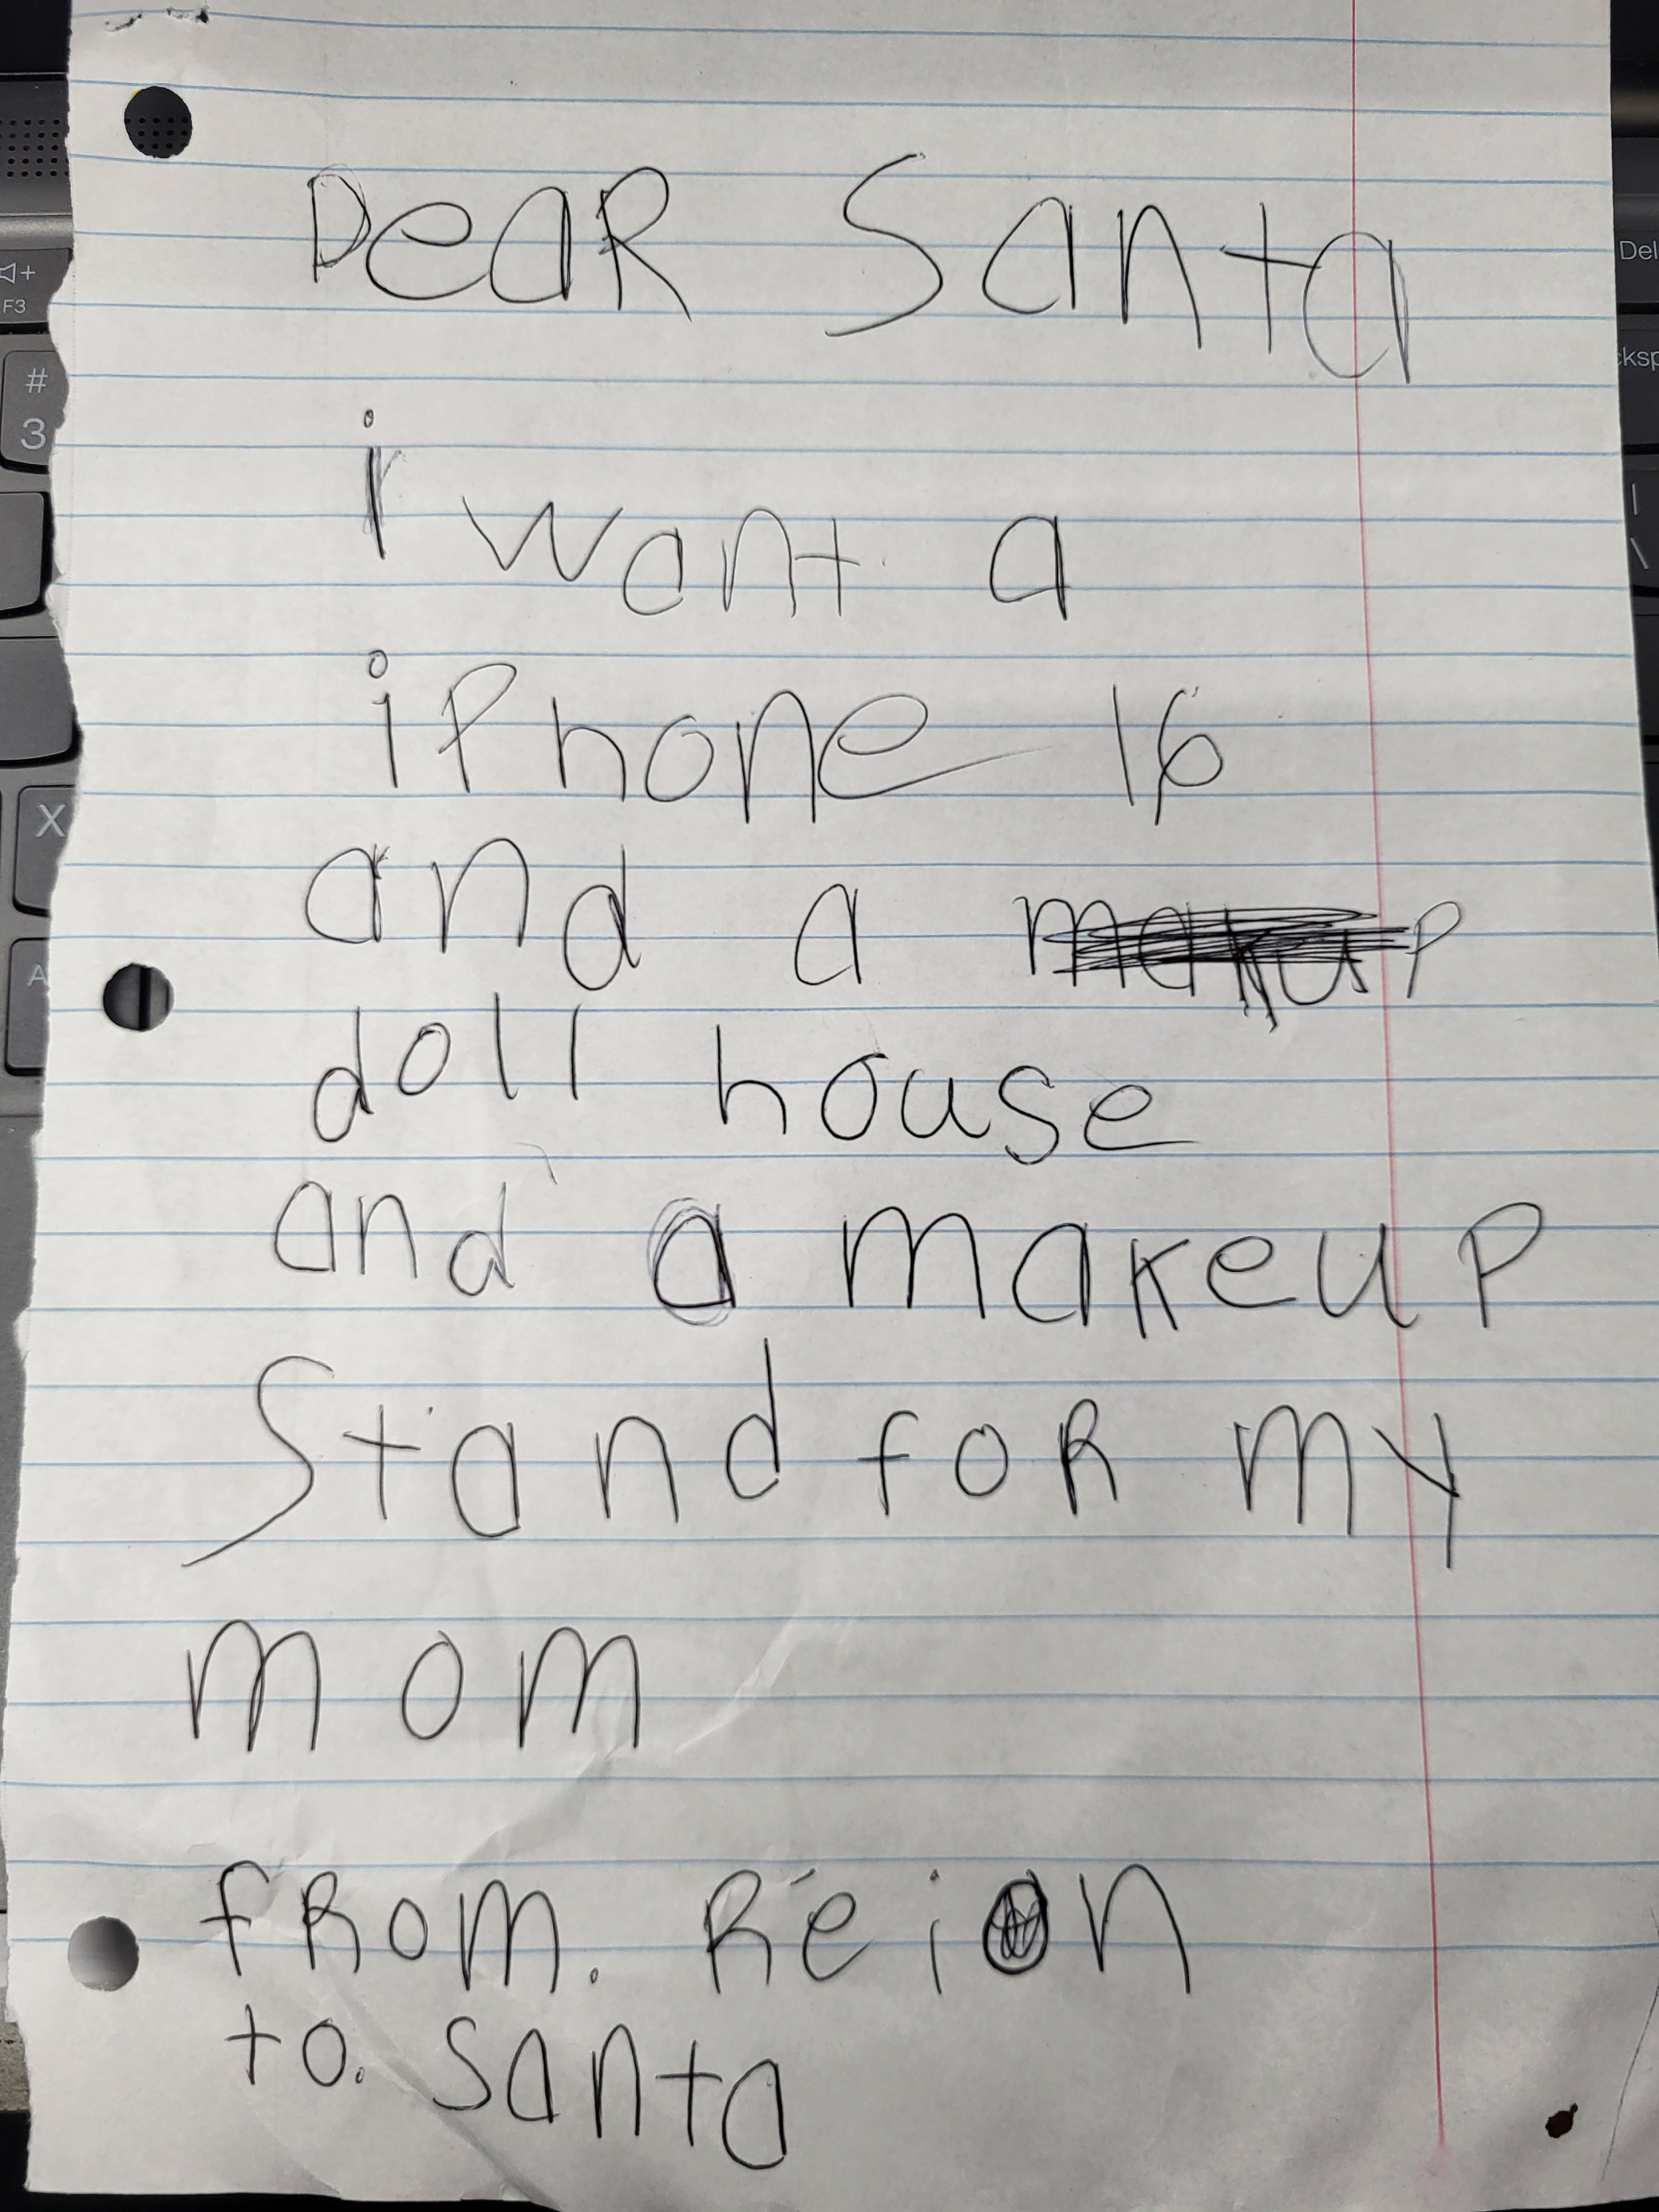 DeaR Santa
i want a
iPhone 16
and a makup
doll house
and a makeup
Stand foR my
mom
fRom. Reion
to. santa
F3
#
3
X
A
Del
cksp
|
\